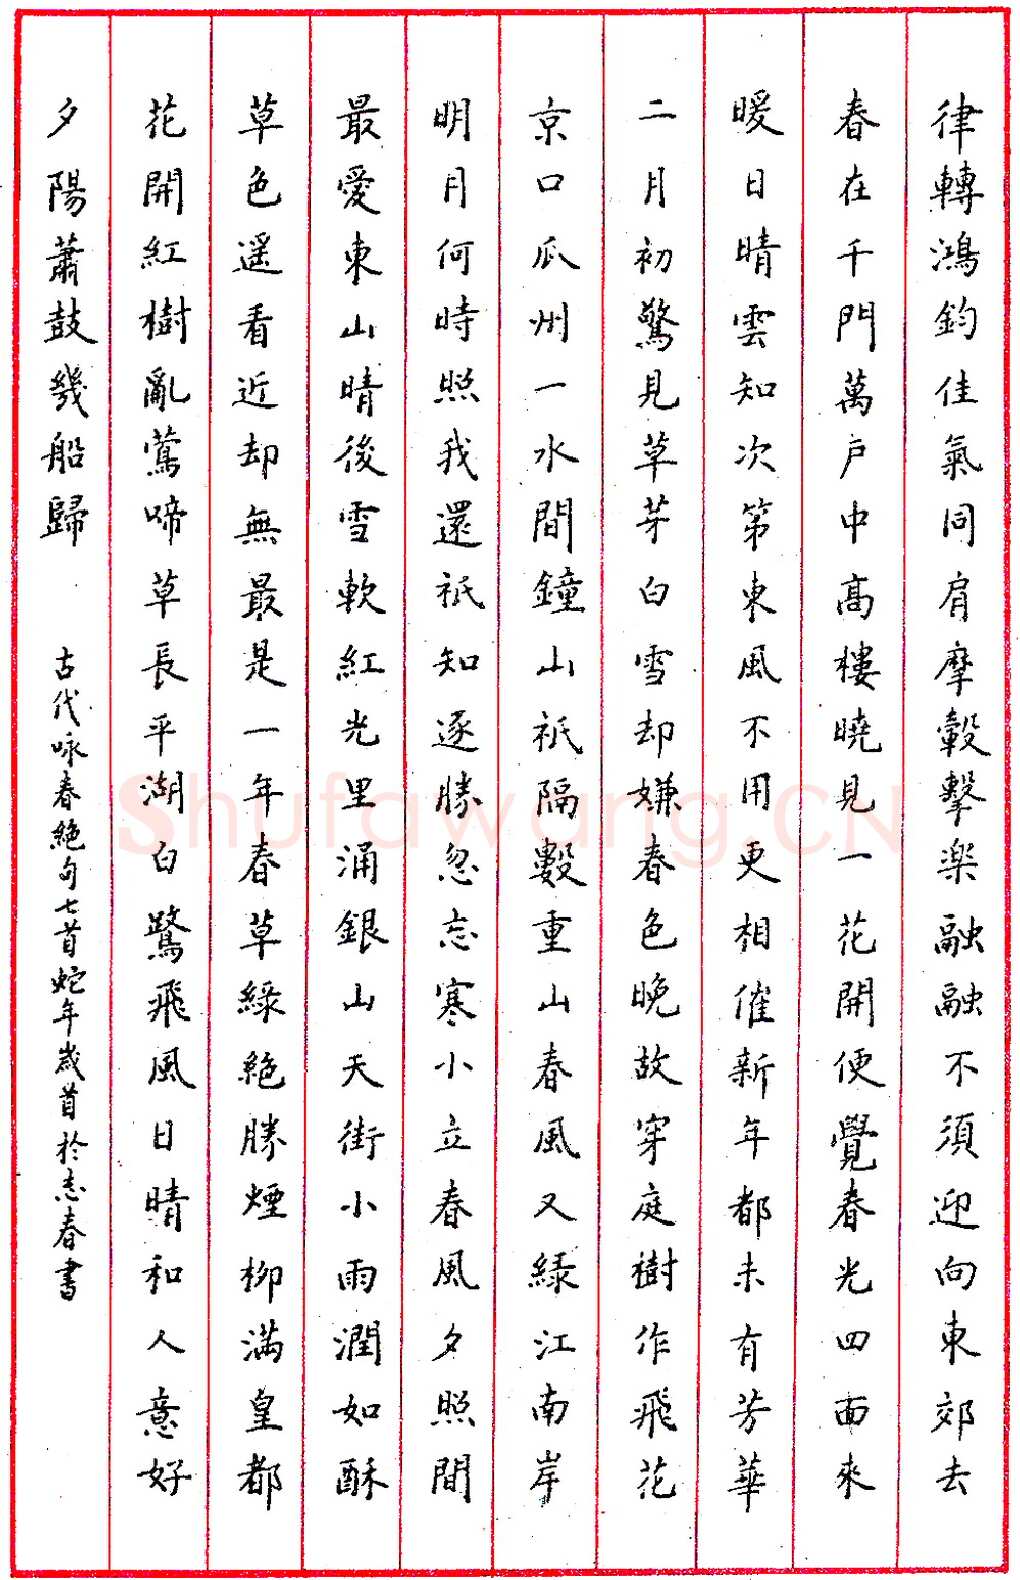 律轉鴻鈞佳氣同肩摩轂擊楽融融不須迎向東郊去
春在千門萬户中高樓曉見一花開便覺春光四面來
暖日晴雲知次第東風不用更相催新年都未有芳華
二月初驚見草芽白雪却嫌春色晚故穿庭樹作飛花
京口瓜州一水間鐘山祇隔數重山春風又緑江南岸
明月何時照我還祇知逐勝忽忘寒小立春風夕照間
最愛東山晴後雪軟紅光里涌銀山天街小雨潤如酥
草色遥看近却無最是一年春草緑絶勝煙柳满皇都
花開紅樹亂鶯啼草長平湖白鷺飛風日晴和人意好
夕陽蕭鼓幾船歸
古代咏春絶句七首蛇年歲首於志春書
Shufawang.CN